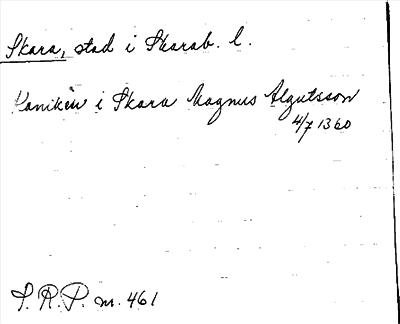 Skara, stad i Skarab. l.
Kaniken i Skara Magnus Algutsson
4/7 1360
S. R. P. nr. 461